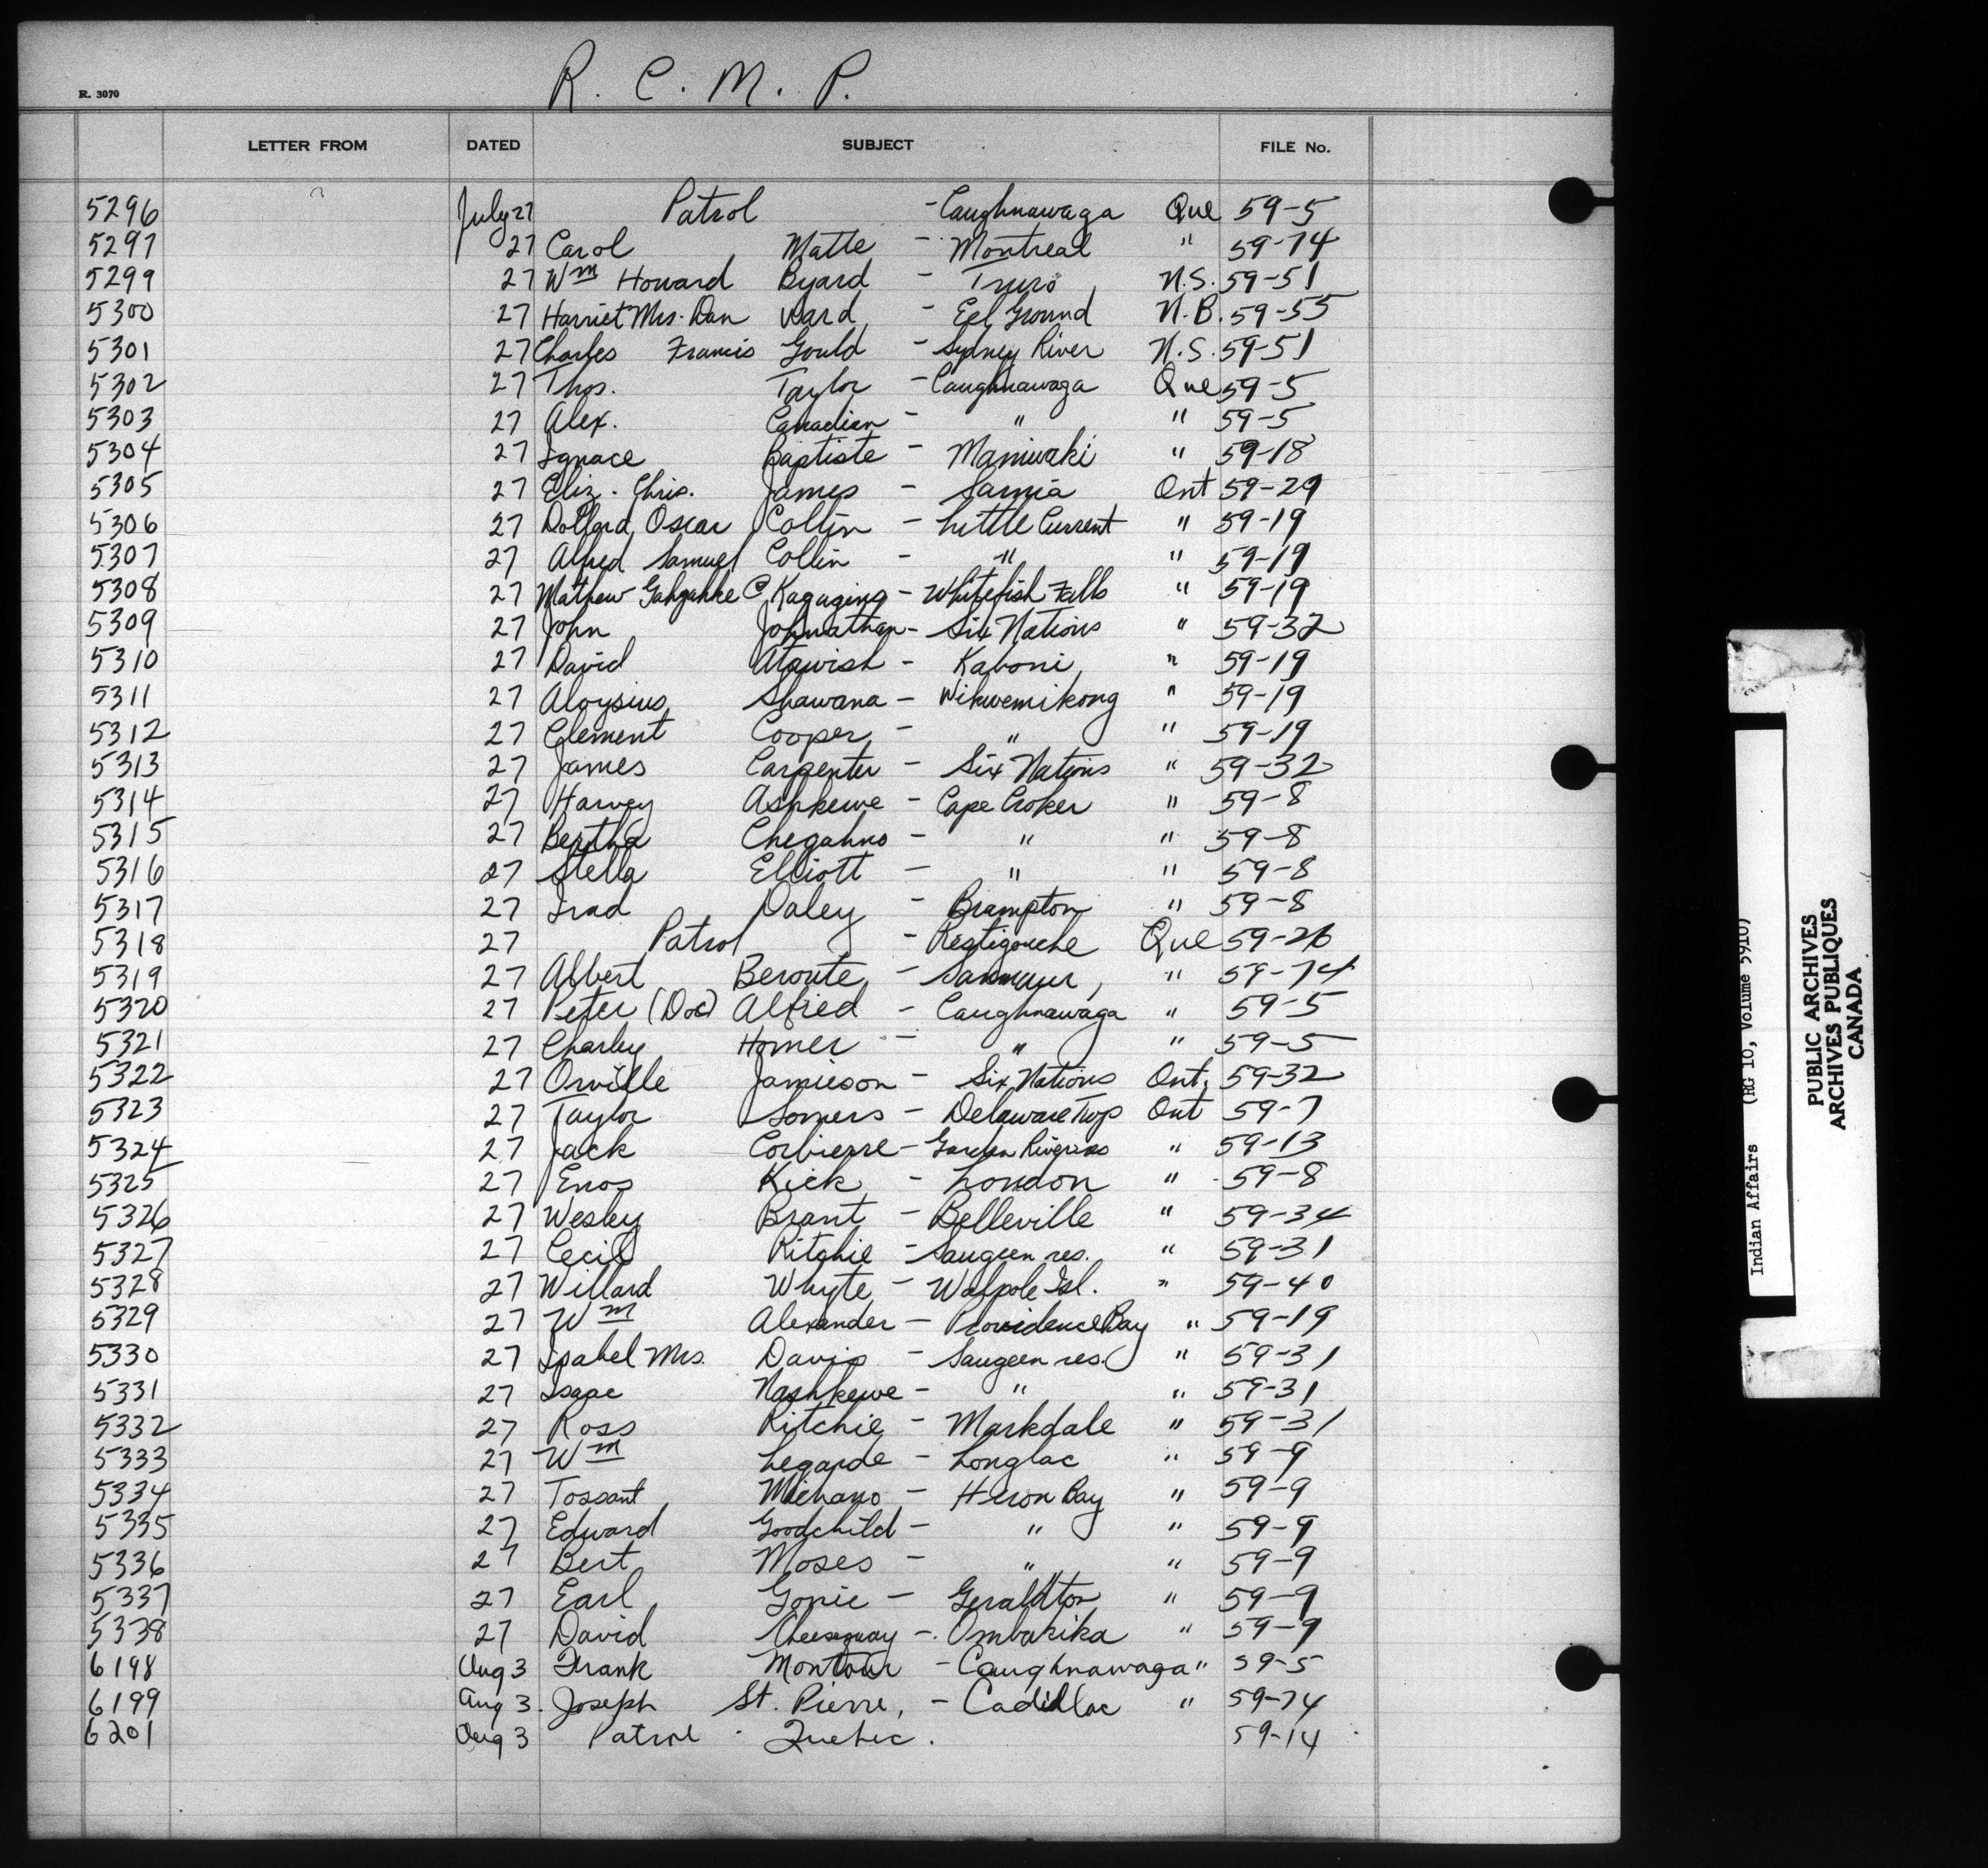 R. C. M. P.
R. 3070
LETTER FROM DATED SUBJECT FILE No.
5296 July 27 Patrol - Caughnawaga Que 59-5
5297 27 Carol Matte - Montreal " 59-74
5299 27 Wm Howard Byard - Truro, N.S. 59-51
5300 27 Harriet Mrs. Dan Ward, - Eel Ground N.B. 59-55
5301 27 Charles Francis Gould - Sydney River N.S. 59-51
5302 27 Thos. Taylor - Caughnawaga Que 59-5
5303 27 Alex. Canadian - " " 59-5
5304 27 Ignace Baptiste - Maniwaki " 59-18
5305 27 Eliz. Chris. James - Sarnia Ont 59-29
5306 27 Dollard Oscar Collin - Little Current " 59-19
5307 27 Alfred Samuel Collin - " " 59-19
5308 27 Mathew Kagaging - Whitefish Falls " 59-19
5309 27 John Johnathan - Six Nations " 59-32
5310 27 David Atawish - Kaboni, " 59-19
5311 27 Aloysius Shawana - Wikwemikong " 59-19
5312 27 Clement Cooper - " " 59-19
5313 27 James Carpenter - Six Nations " 59-32
5314 27 Harvey Ashkewe - Cape Croker " 59-8
5315 27 Bertha Chegahno - " " 59-8
5316 27 Stella Elliott - " " 59-8
5317 27 Irad Daley - Brampton " 59-8
5318 27 Patrol - Restigouche Que 59-26
5319 27 Albert Beroute - " 59-74
5320 27 Peter (Doc) Alfred - Caughnawaga " 59-5
5321 27 Charley Homer - " " 59-5
5322 27 Orville Jamieson - Six Nations Ont. 59-32
5323 27 Taylor Somers - Delaware Twp Ont 59-7
5324 27 Jack Corbierre - Garden River " 59-13
5325 27 Enos Kick - London " 59-8
5326 27 Wesley Brant - Belleville " 59-34
5327 27 Cecil Ritchie - Saugeen res. " 59-31
5328 27 Willard Whyte - Walpole Isl. " 59-40
5329 27 Wm Alexander - Providence Bay " 59-19
5330 27 Isabel Mrs. Davis - Saugeen res. " 59-31
5331 27 Isaac Nashkewe - " " 59-31
5332 27 Ross Ritchie - Markdale " 59-31
5333 27 Wm Legarde - Longlac " 59-9
5334 27 Tossant Michano - Heron Bay " 59-9
5335 27 Edward Goodchild - " " 59-9
5336 27 Bert Moses - " " 59-9
5337 27 Earl Gonie - Geraldton " 59-9
5338 27 David Cheesequay - Ombakika " 59-9
6198 Aug 3 Frank Montour - Caughnawaga " 59-5
6199 Aug 3. Joseph St. Pierre, - Cadillac " 59-74
6201 Aug 3 Patrol - Quebec. 59-14
Indian Affairs (RG 10, Volume 5910)
PUBLIC ARCHIVES
ARCHIVES PUBLIQUES
CANADA